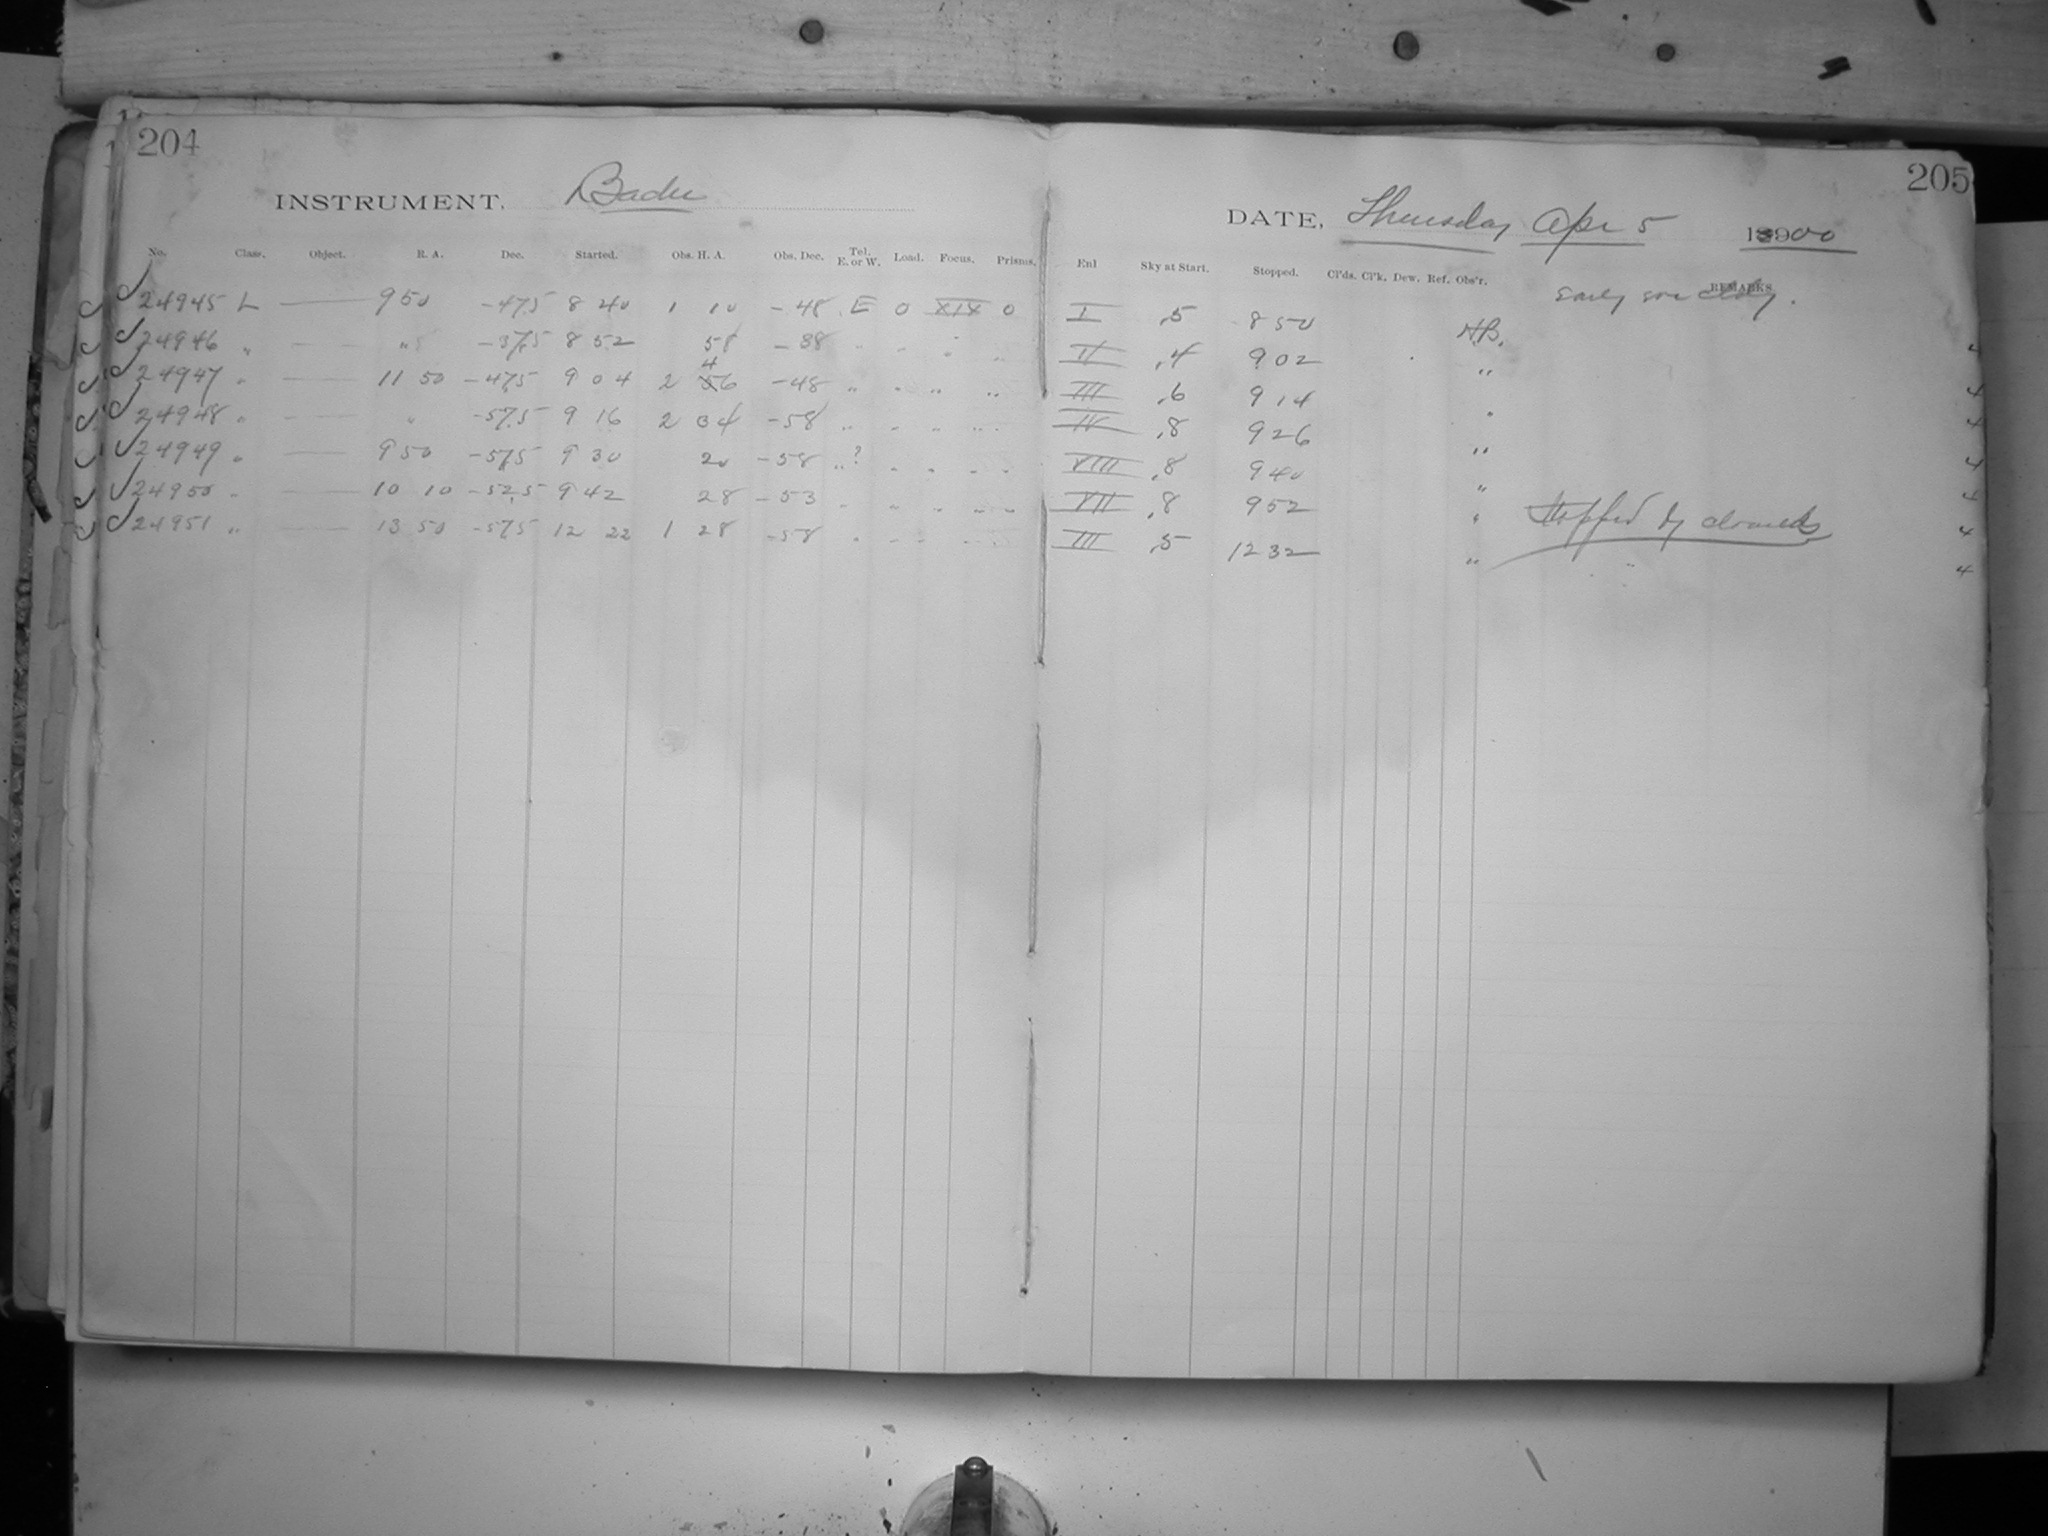 204
INSTRUMENT. Bache
No. Class. Object. R. A. Dec. Started. Obs. H. A. Obs. Dec. Tel. E. or W. Load. Focus. Prisms.
24945 L — 9 50 -47.5 8 40 1 10 -48 E 0 XIX 0
24946 " — " -37.5 8 52 58 -38 " " " "
24947 " — 11 50 -47.5 9 04 2 46 -48 " " " "
24948 " — " -57.5 9 16 2 34 -58 " " " "
24949 " — 9 50 -57.5 9 30 20 -58 "? " " "
24950 " — 10 10 -52.5 9 42 28 -53 " " " "
24951 " — 13 50 -57.5 12 22 1 28 -58 " " " "
205
DATE, Thursday Apr 5 1900
Enl Sky at Start. Stopped. Cl'ds. Cl'k. Dew. Ref. Obs'r. REMARKS.
Early eve cldy.
I .5 8 50 H.B.
II .4 9 02 " 4
III .6 9 14 " 4
IV .8 9 26 " 4
VIII .8 9 40 " 4
VII .8 9 52 " Stopped by clouds 4
III .5 12 32 " " " 4
4